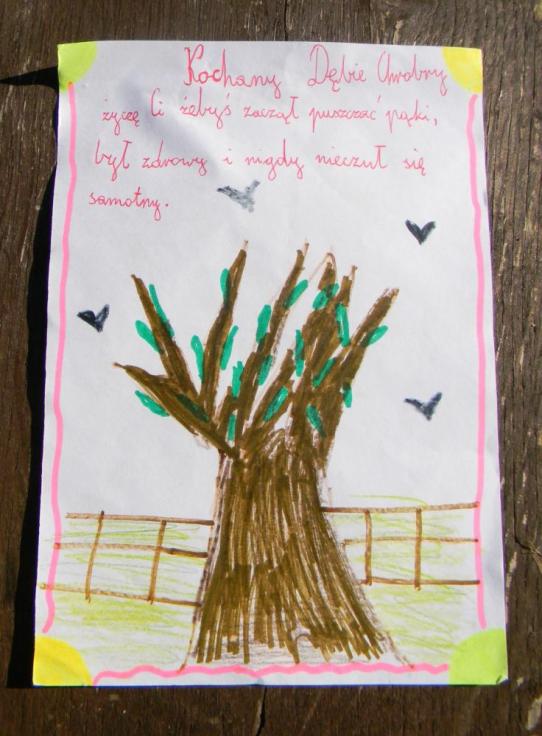 Kochany Dębie Chrobry
życzę Ci żebyś zaczął puszczać pąki,
był zdrowy i nigdy nieczuł się
samotny.